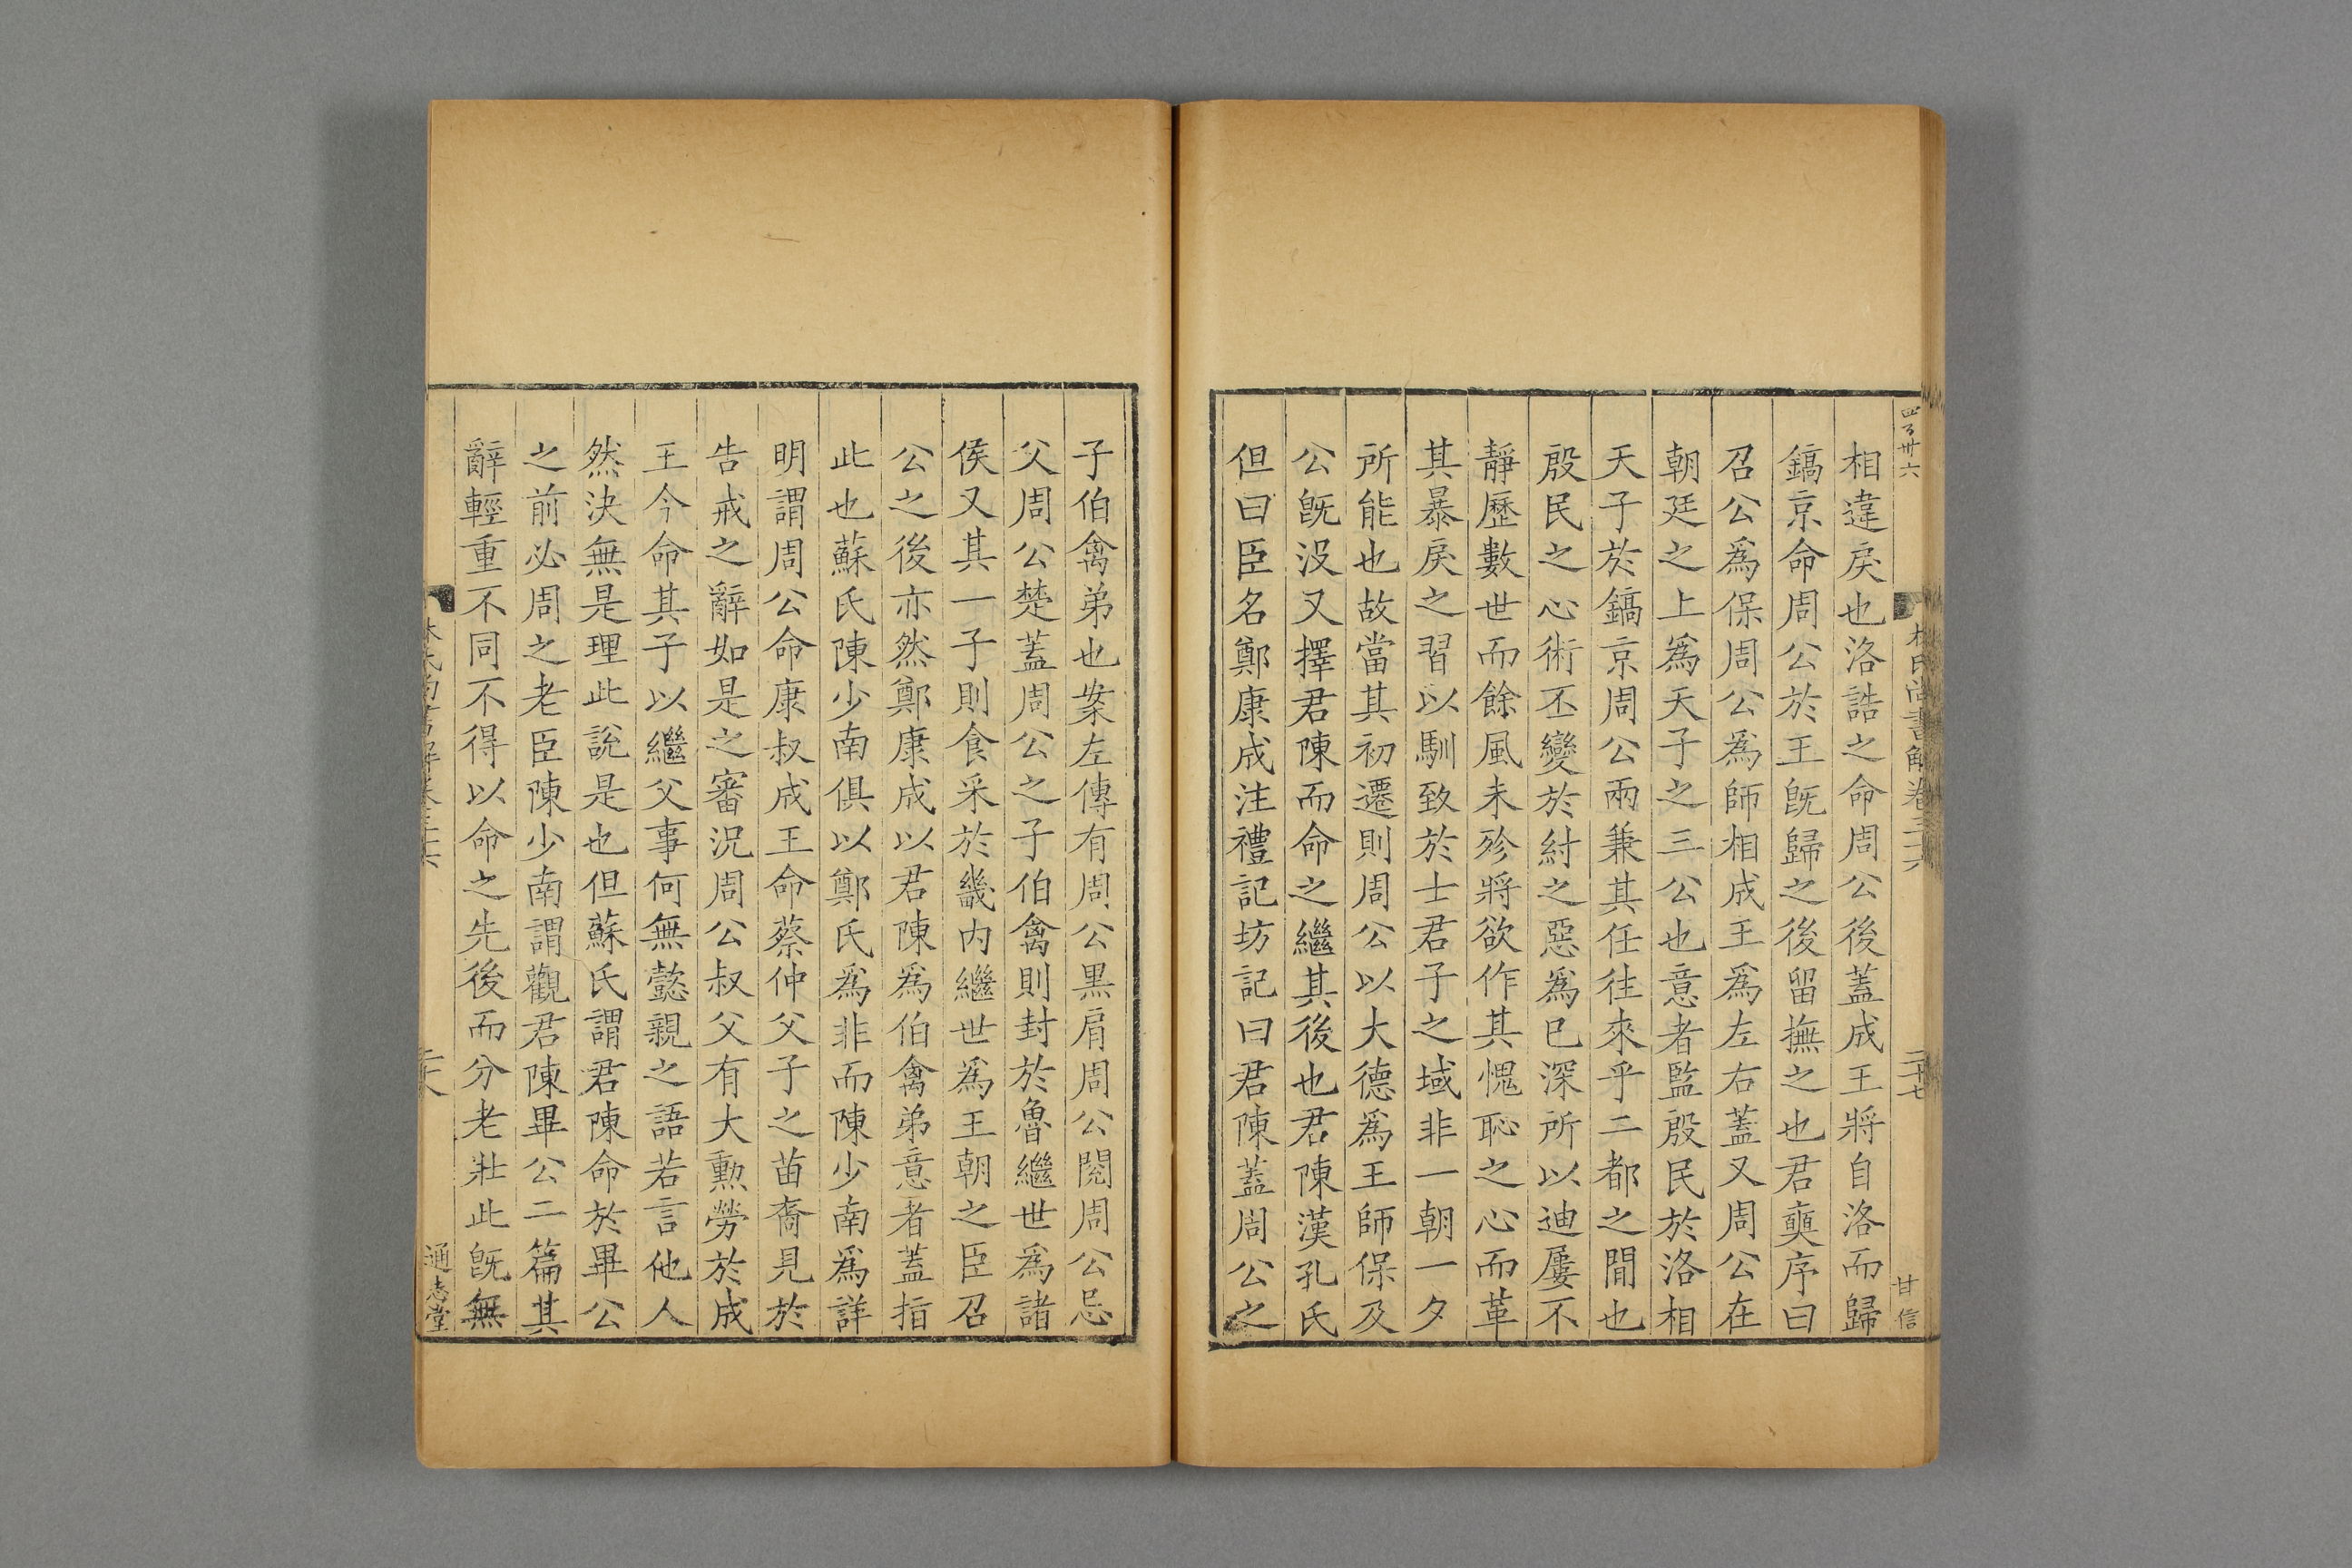 四百卅六
林氏尚書解卷三十六
二十七
甘信
相違戾也洛誥之命周公後蓋成王將自洛而歸
鎬京命周公於王旣歸之後留撫之也君奭序曰
召公爲保周公爲師相成王爲左右蓋又周公在
朝廷之上爲天子之三公也意者監殷民於洛相
天子於鎬京周公兩兼其任往來乎二都之間也
殷民之心術丕變於紂之惡爲已深所以迪屢不
靜歷數世而餘風未殄將欲作其愧恥之心而革
其暴戾之習以馴致於士君子之域非一朝一夕
所能也故當其初遷則周公以大德爲王師保及
公旣沒又擇君陳而命之繼其後也君陳漢孔氏
但曰臣名鄭康成注禮記坊記曰君陳蓋周公之
子伯禽弟也案左傳有周公黑肩周公閱周公忌
父周公楚蓋周公之子伯禽則封於魯繼世爲諸
侯又其一子則食采於畿内繼世爲王朝之臣召
公之後亦然鄭康成以君陳爲伯禽弟意者蓋指
此也蘇氏陳少南俱以鄭氏爲非而陳少南爲詳
明謂周公命康叔成王命蔡仲父子之苗裔見於
告戒之辭如是之審況周公叔父有大勲勞於成
王今命其子以繼父事何無懿親之語若言他人
然決無是理此說是也但蘇氏謂君陳命於畢公
之前必周之老臣陳少南謂觀君陳畢公二篇其
辭輕重不同不得以命之先後而分老壯此旣無
林氏尚書解卷三十六
通志堂